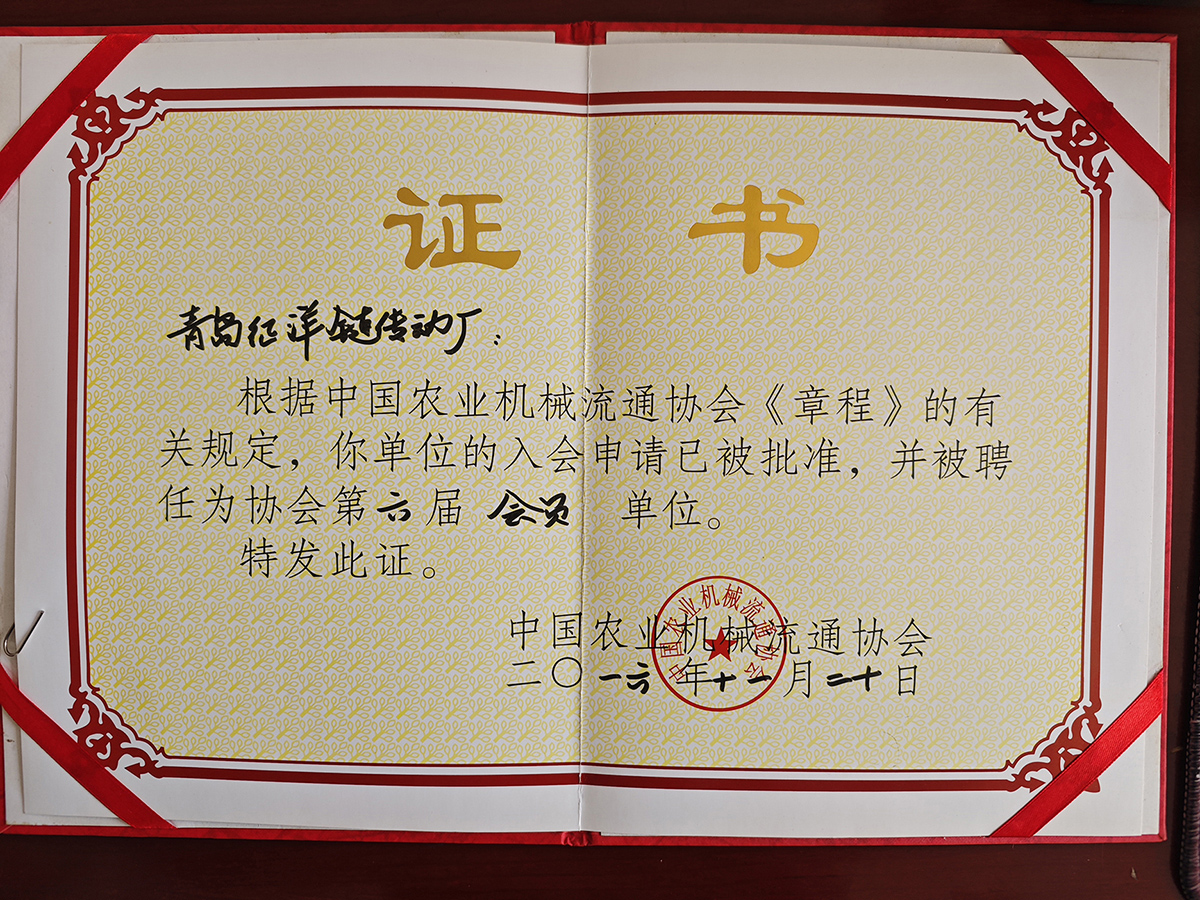 证 书
青岛征洋链传动厂：
根据中国农业机械流通协会《章程》的有
关规定，你单位的入会申请已被批准，并被聘
任为协会第六届 会员 单位。
特发此证。
中国农业机械流通协会
二〇一六年十一月二十日
中国农业机械流通协会